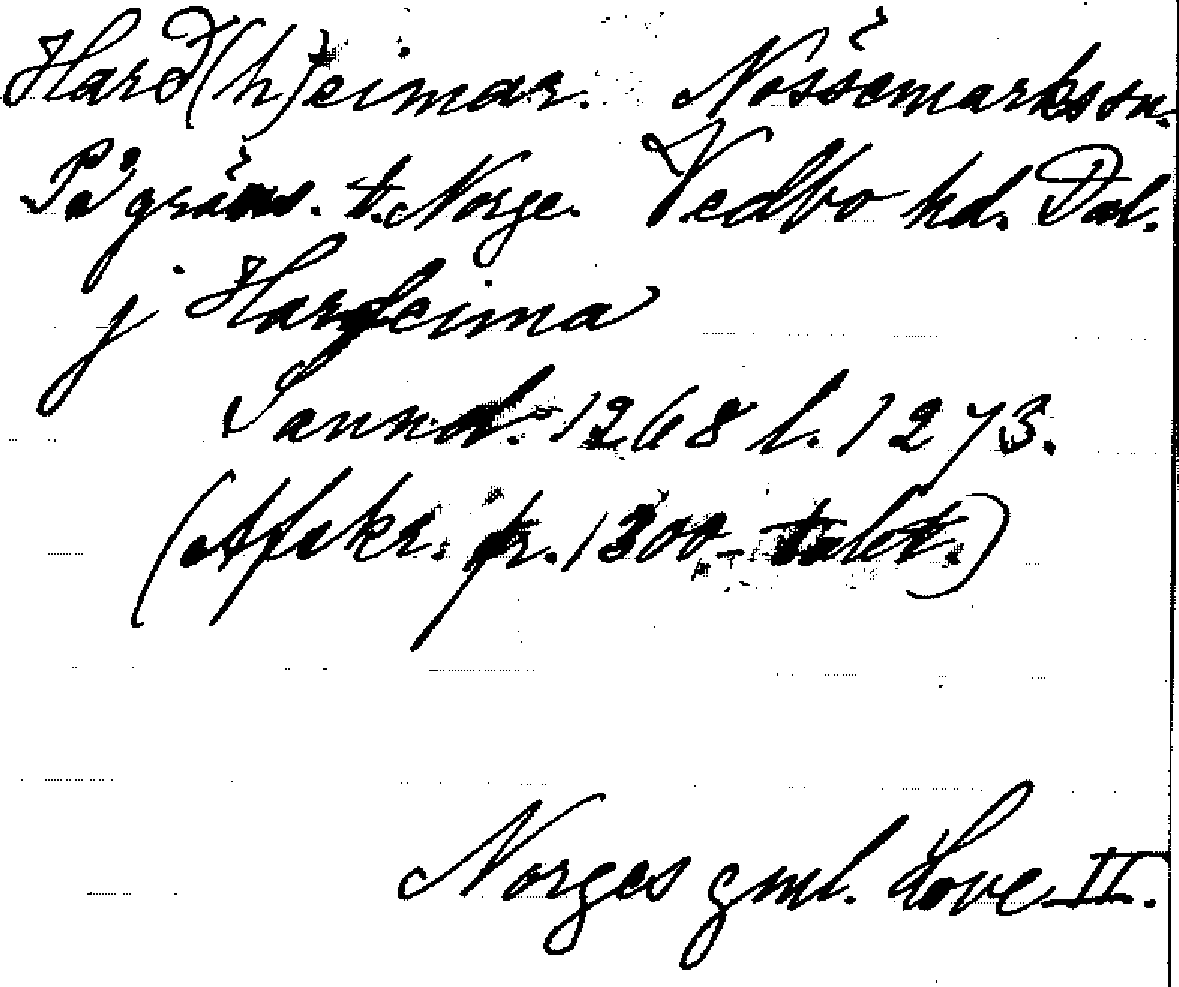 Harð(h)eimar. Nössemarks sn.
På gräns. t. Norge. Vedbo hd. Dal.
j Harðeima
Sannol. 1268 l. 1273.
(Afskr. fr. 1300-talet.)
Norges gml. Love II.